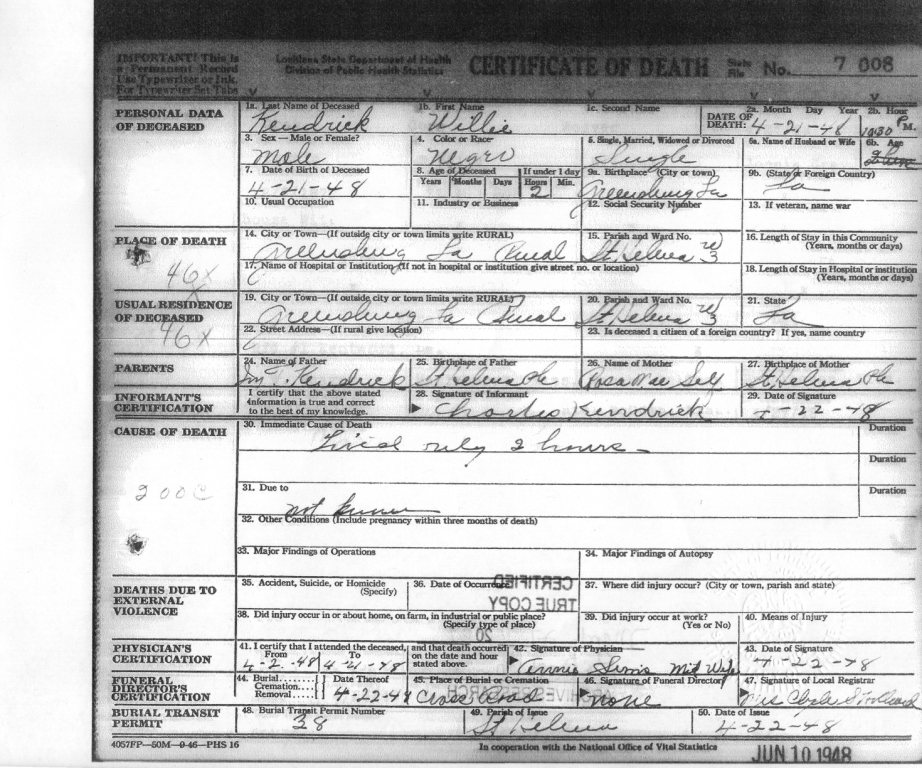 IMPORTANT! This is
a Permanent Record
Use Typewriter or Ink.
For Typewriter Set Tabs
Louisiana State Department of Health
Division of Public Health Statistics
CERTIFICATE OF DEATH
State File No. 7 008
PERSONAL DATA
OF DECEASED
1a. Last Name of Deceased 1b. First Name 1c. Second Name 2a. Month Day Year 2b. Hour
Kendrick Willie DATE OF DEATH: 4-21-48 10:30 P M.
3. Sex—Male or Female? 4. Color or Race? 5. Single, Married, Widowed or Divorced 6a. Name of Husband or Wife 6b. Age
Male Negro Single
7. Date of Birth of Deceased 8. Age of Deceased If under 1 day 9a. Birthplace (City or town) 9b. (State or Foreign Country)
Years Months Days Hours Min.
4-21-48 2 Greensburg La La
10. Usual Occupation 11. Industry or Business 12. Social Security Number 13. If veteran, name war
PLACE OF DEATH
46X
14. City or Town—(If outside city or town limits write RURAL) 15. Parish and Ward No. 16. Length of Stay in this Community
(Years, months or days)
Greensburg La Rural St. Helena 3
17. Name of Hospital or Institution (If not in hospital or institution give street no. or location) 18. Length of Stay in Hospital or institution
(Years, months or days)
USUAL RESIDENCE
OF DECEASED
46X
19. City or Town—(If outside city or town limits write RURAL) 20. Parish and Ward No. 21. State
Greensburg La Rural St Helena 3 La
22. Street Address—(If rural give location) 23. Is deceased a citizen of a foreign country? If yes, name country
PARENTS
24. Name of Father 25. Birthplace of Father 26. Name of Mother 27. Birthplace of Mother
Kendrick St Helena Pa Rosa Mae Self St Helena Pa
INFORMANT'S
CERTIFICATION
I certify that the above stated
information is true and correct
to the best of my knowledge.
28. Signature of Informant 29. Date of Signature
Charles Kendrick -22-48
CAUSE OF DEATH
200C
30. Immediate Cause of Death Duration
Lived only 2 hours
Duration
31. Due to Duration
not known
32. Other Conditions (Include pregnancy within three months of death)
33. Major Findings of Operations 34. Major Findings of Autopsy
DEATHS DUE TO
EXTERNAL
VIOLENCE
35. Accident, Suicide, or Homicide
(Specify)
36. Date of Occurrence 37. Where did injury occur? (City or town, parish and state)
CERTIFIED
TRUE COPY
20
38. Did injury occur in or about home, on farm, in industrial or public place?
(Specify type of place)
39. Did injury occur at work?
(Yes or No)
40. Means of Injury
PHYSICIAN'S
CERTIFICATION
41. I certify that I attended the deceased,
From To
4-2-48 4-21-48
and that death occurred
on the date and hour
stated above.
42. Signature of Physician 43. Date of Signature
Annie Mid Wife 4-22-48
FUNERAL
DIRECTOR'S
CERTIFICATION
44. Burial
Cremation
Removal
Date Thereof
4-22-48
45. Place of Burial or Cremation 46. Signature of Funeral Director 47. Signature of Local Registrar
none
BURIAL TRANSIT
PERMIT
48. Burial Transit Permit Number 49. Parish of Issue 50. Date of Issue
38 St Helena 4-22-48
4057FP—50M—9-46—PHS 16
In cooperation with the National Office of Vital Statistics
JUN 10 1948